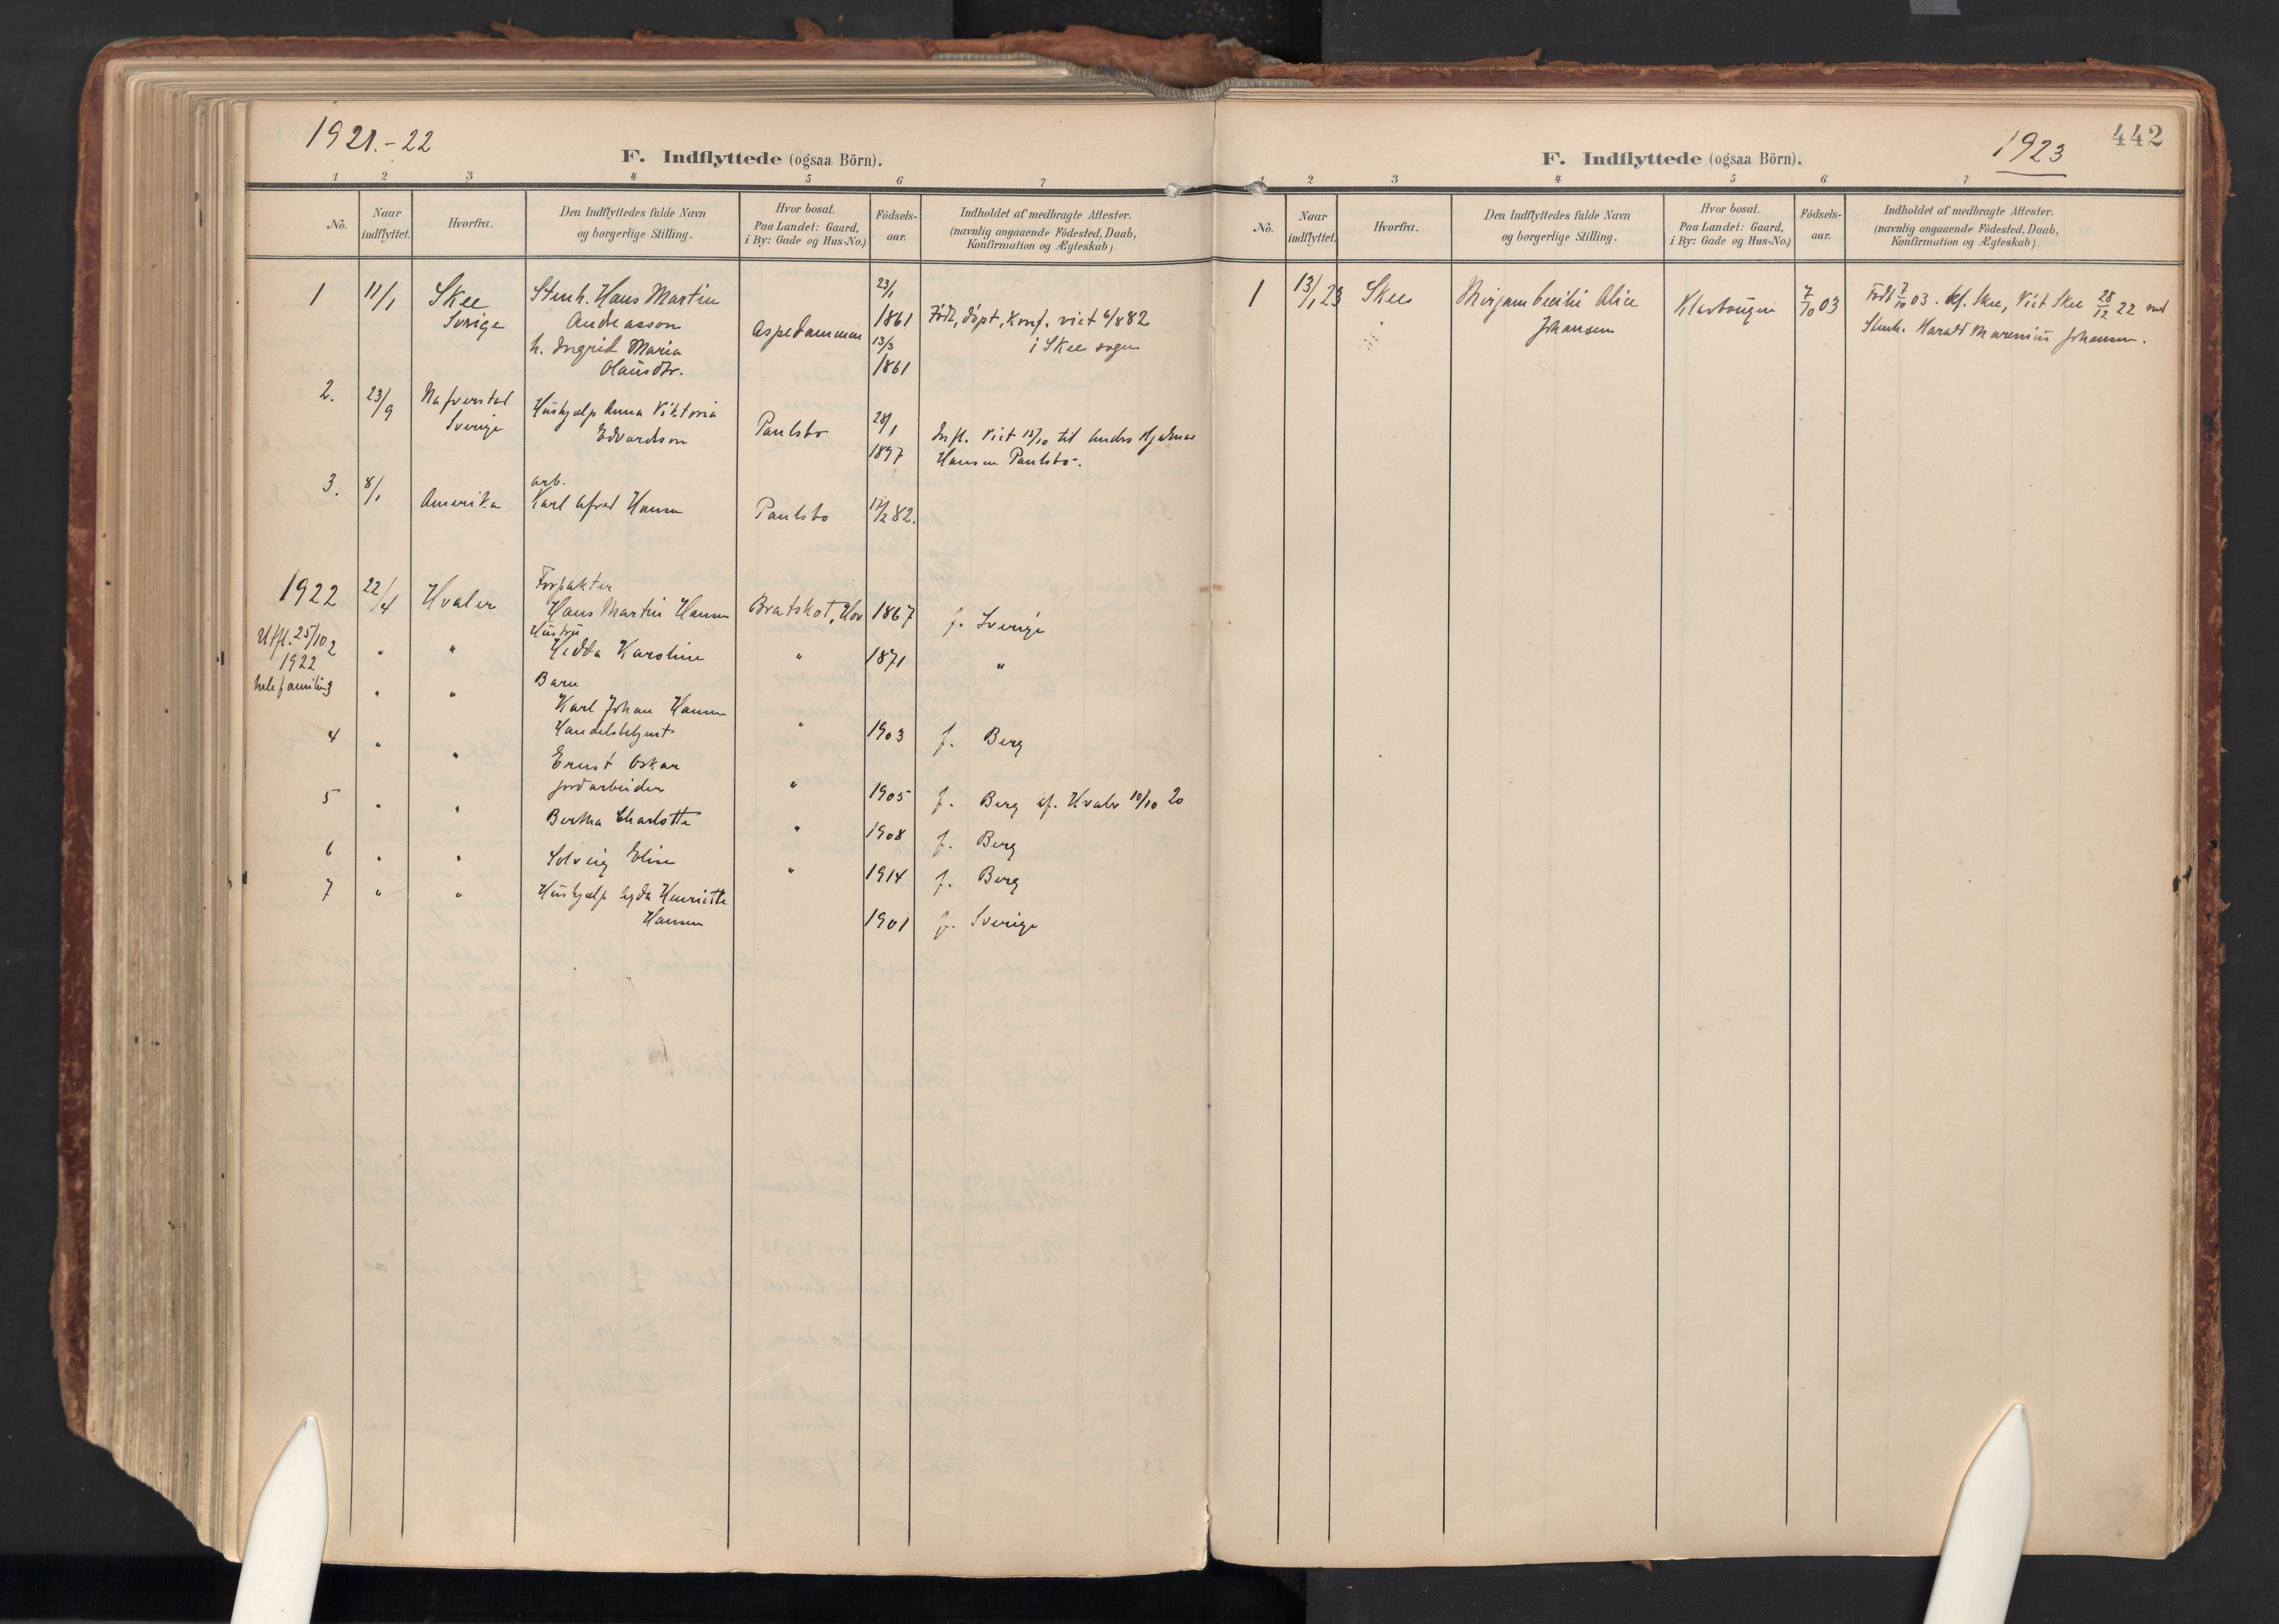 1921.-22
F. Indflyttede (ogsaa Börn).
1 2 3 4 5 6 7
No.
Naar indflyttet.
Hvorfra.
Den Indflyttedes fulde Navn og borgerlige Stilling.
Hvor bosat. Paa Landet: Gaard, i By: Gade og Hus-No.)
Födsels-aar.
Indholdet af medbragte Attester. (navnlig angaaende Födested, Daab, Konfirmation og Ægteskab).
1 11/1 Skee Stenh. Hans Martin 23/1
Sverige Andeasson Aspedammen 1861 Födt, döpt, konf. viet 6/8 82
h. Ingrid Maria 13/3 i Skee sogn
Olausdtr. 1861
2. 23/9 Nafverstad Hushjælp Anna Viktoria 28/1
Sverige Edvardson Paulsbo 1897 Infl. Viet 15/10 til Anders Hjalmar
Hansen Paulsbo.
3. 8/1 arb.
Amerika Karl Afred Hansen Paulsbo 17/2 82.
1922 22/4 Hvaler Forpakter
Hans Martin Hansen Bratskot, Hov 1867 f. Sverige
Utfl. 25/10 2 " " Hustru
1922 Hedda Karoline " 1871 "
hele familien 3 " " Barn
Karl Johan Hansen
4 " " Handelsbetjent " 1903 f. Berg
Ernst Oskar
5 " " jordarbeider " 1905 f. Berg kf. Hvaler 10/10 20
Bertha Charlotte " 1908 f. Berg
6 " " Solveig Elise " 1914 f. Berg
7 " " Hushjælp Henriette
Hansen 1901 f. Sverige
442
1923
F. Indflyttede (ogsaa Börn).
1 2 3 4 5 6 7
No.
Naar indflyttet.
Hvorfra.
Den Indflyttedes fulde Navn og borgerlige Stilling.
Hvor bosat. Paa Landet: Gaard, i By: Gade og Hus-No.)
Födsels-aar.
Indholdet af medbragte Attester. (navnlig angaaende Födested, Daab, Konfirmation og Ægteskab).
1 13/1 23 Skee Mirjam Cecilie Alice 7/10 03 Födt 7/10 03. kf. Skee, Viet Skee 28/12 22 med
Johansen Stenh. Harald Marenius Johansen.